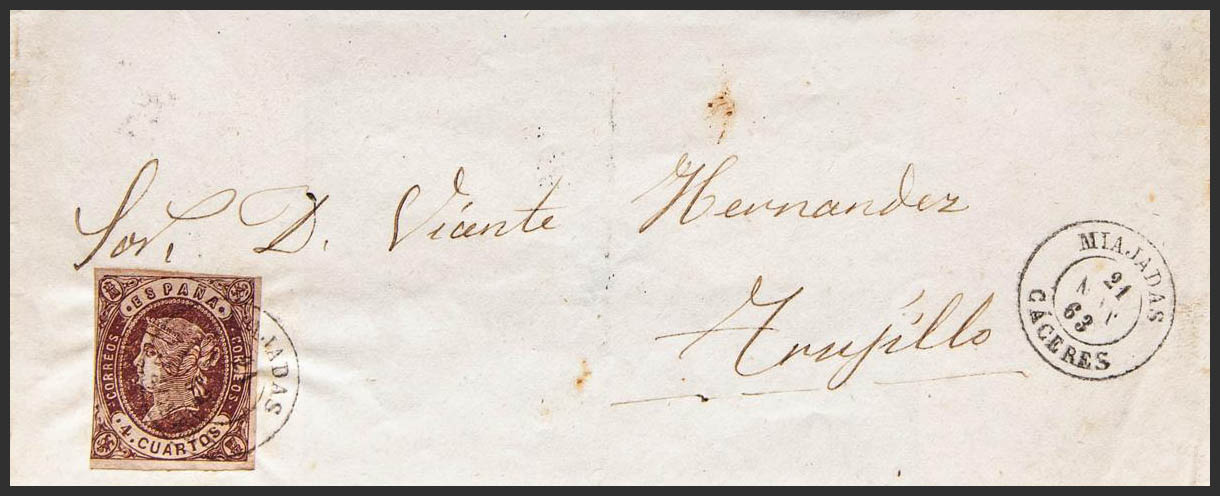 Sor. D. Viante Hernandez
Trujillo
ESPAÑA
CORREOS CORREOS
4 CUARTOS
JADAS
MIAJADAS
21
63
CÁCERES